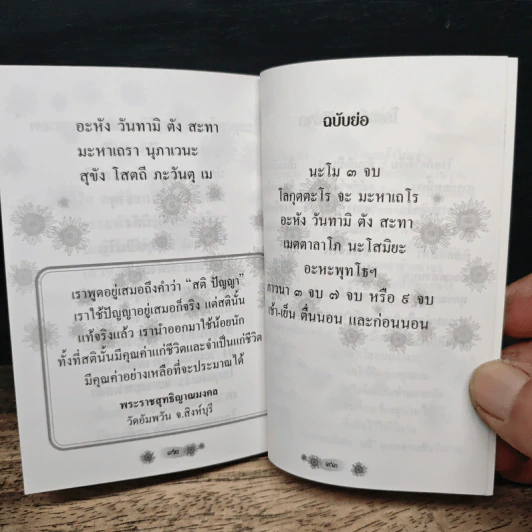 อะหัง วันทามิ ตัง สะทา
มะหาเถรา นุภาเวนะ
สุขัง โสตถี ภะวันตุ เม
เราพูดอยู่เสมอถึงคำว่า “สติ ปัญญา”
เราใช้ปัญญาอยู่เสมอก็จริง แต่สตินั้น
แท้จริงแล้ว เรานำออกมาใช้น้อยนัก
ทั้งที่สตินั้นมีคุณค่าแก่ชีวิตและจำเป็นแก่ชีวิต
มีคุณค่าอย่างเหลือที่จะประมาณได้
พระราชสุทธิญาณมงคล
วัดอัมพวัน จ.สิงห์บุรี
ฉบับย่อ
นะโม ๓ จบ
โลกุตตะโร จะ มะหาเถโร
อะหัง วันทามิ ตัง สะทา
เมตตาลาโภ นะโสมิยะ
อะหะพุทโธฯ
ภาวนา ๓ จบ ๗ จบ หรือ ๙ จบ
เช้า-เย็น ตื่นนอน และก่อนนอน